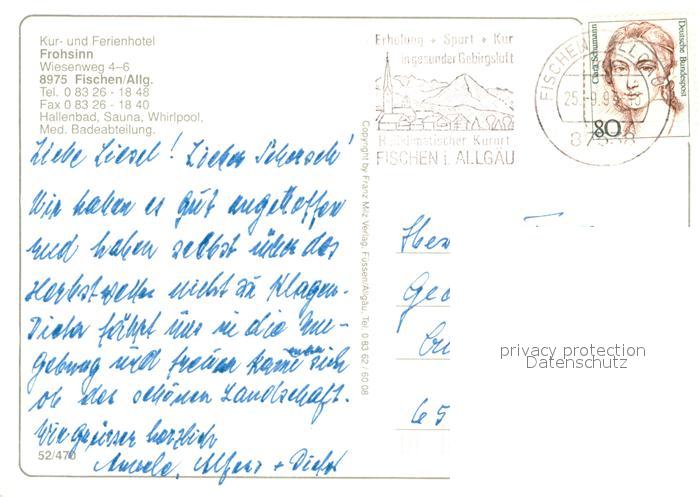 Kur- und Ferienhotel
Frohsinn
Wiesenweg 4–6
8975 Fischen/Allg.
Tel. 0 83 26 - 18 48
Fax 0 83 26 - 18 40
Hallenbad, Sauna, Whirlpool,
Med. Badeabteilung.
Liebe Liesel! Lieber Schorsch!
Wir haben es gut angetroffen
und haben selbst über das
Herbstwetter nicht zu klagen.
Dieter fährt uns in die Um-
gebung und freuen kann man sich
ob der schönen Landschaft.
Wir grüssen herzlich
+ Dieter
52/470
Copyright by Franz Milz Verlag, Füssen/Allgäu, Tel. 0 83 62 / 60 08
Erholung + Sport + Kur
in gesunder Gebirgsluft
Heilklimatischer Kurort
FISCHEN i. ALLGÄU
FISCHEN
25.-9.9
Clara Schumann
Deutsche Bundespost
80
65
privacy protection
Datenschutz